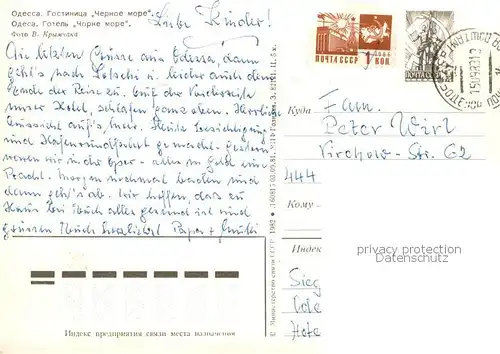 Одесса. Гостиница „Черное море".
Одеса. Готель „Чорне море".
Фото В. Крымчака
Liebe Kinder!
Die letzten Grüsse aus Odessa, dann
geht's nach Sotschi u. leider auch dem
Ende der Reise zu. Auf der Rückseite
unser Hotel, schlafen ganz oben. Herrliche
Aussicht auf's Meer. Heute Besichtigung
und Hafenrundfahrt gemacht. Gestern
waren wir in der Oper - alles in Gold eine
Pracht. Morgen nochmal baden und
dann geht's ab. Wir hoffen, dass zu
Haus bei Euch alles gesund ist und
grüssen Euch herzlichst Papa + Mutti
Индекс предприятия связи места назначения
© Министерство связи СССР. 1982
ПОЧТА СССР
1 КОП.
Куда
Fam.
Peter Wirl
Virchow-Str. 62
444
Кому
Индек
privacy protection
watermark
Sieg
Hote